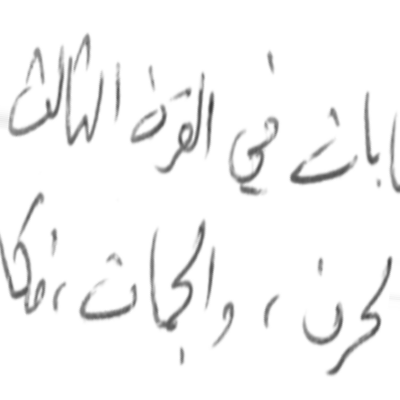 ابات في القرن الثالث
لحرن ، والجمات ، فكا